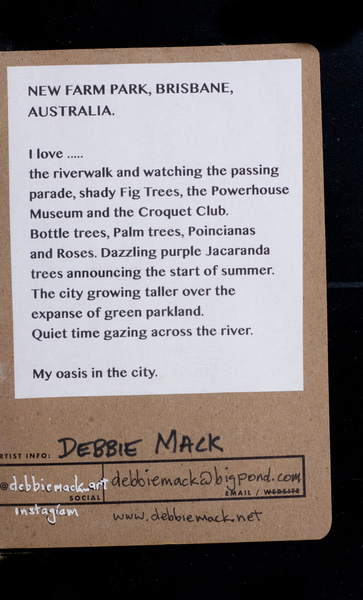 NEW FARM PARK, BRISBANE,
AUSTRALIA.
I love .....
the riverwalk and watching the passing
parade, shady Fig Trees, the Powerhouse
Museum and the Croquet Club.
Bottle trees, Palm trees, Poincianas
and Roses. Dazzling purple Jacaranda
trees announcing the start of summer.
The city growing taller over the
expanse of green parkland.
Quiet time gazing across the river.
My oasis in the city.
RTIST INFO: DEBBIE MACK
@debbiemack_art debbiemack@bigpond.com
SOCIAL EMAIL / WEBSITE
instagram www.debbiemack.net